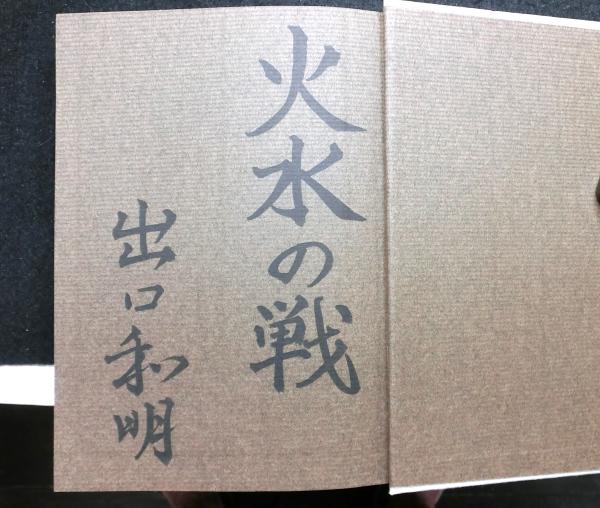 火水の戦
出口和明